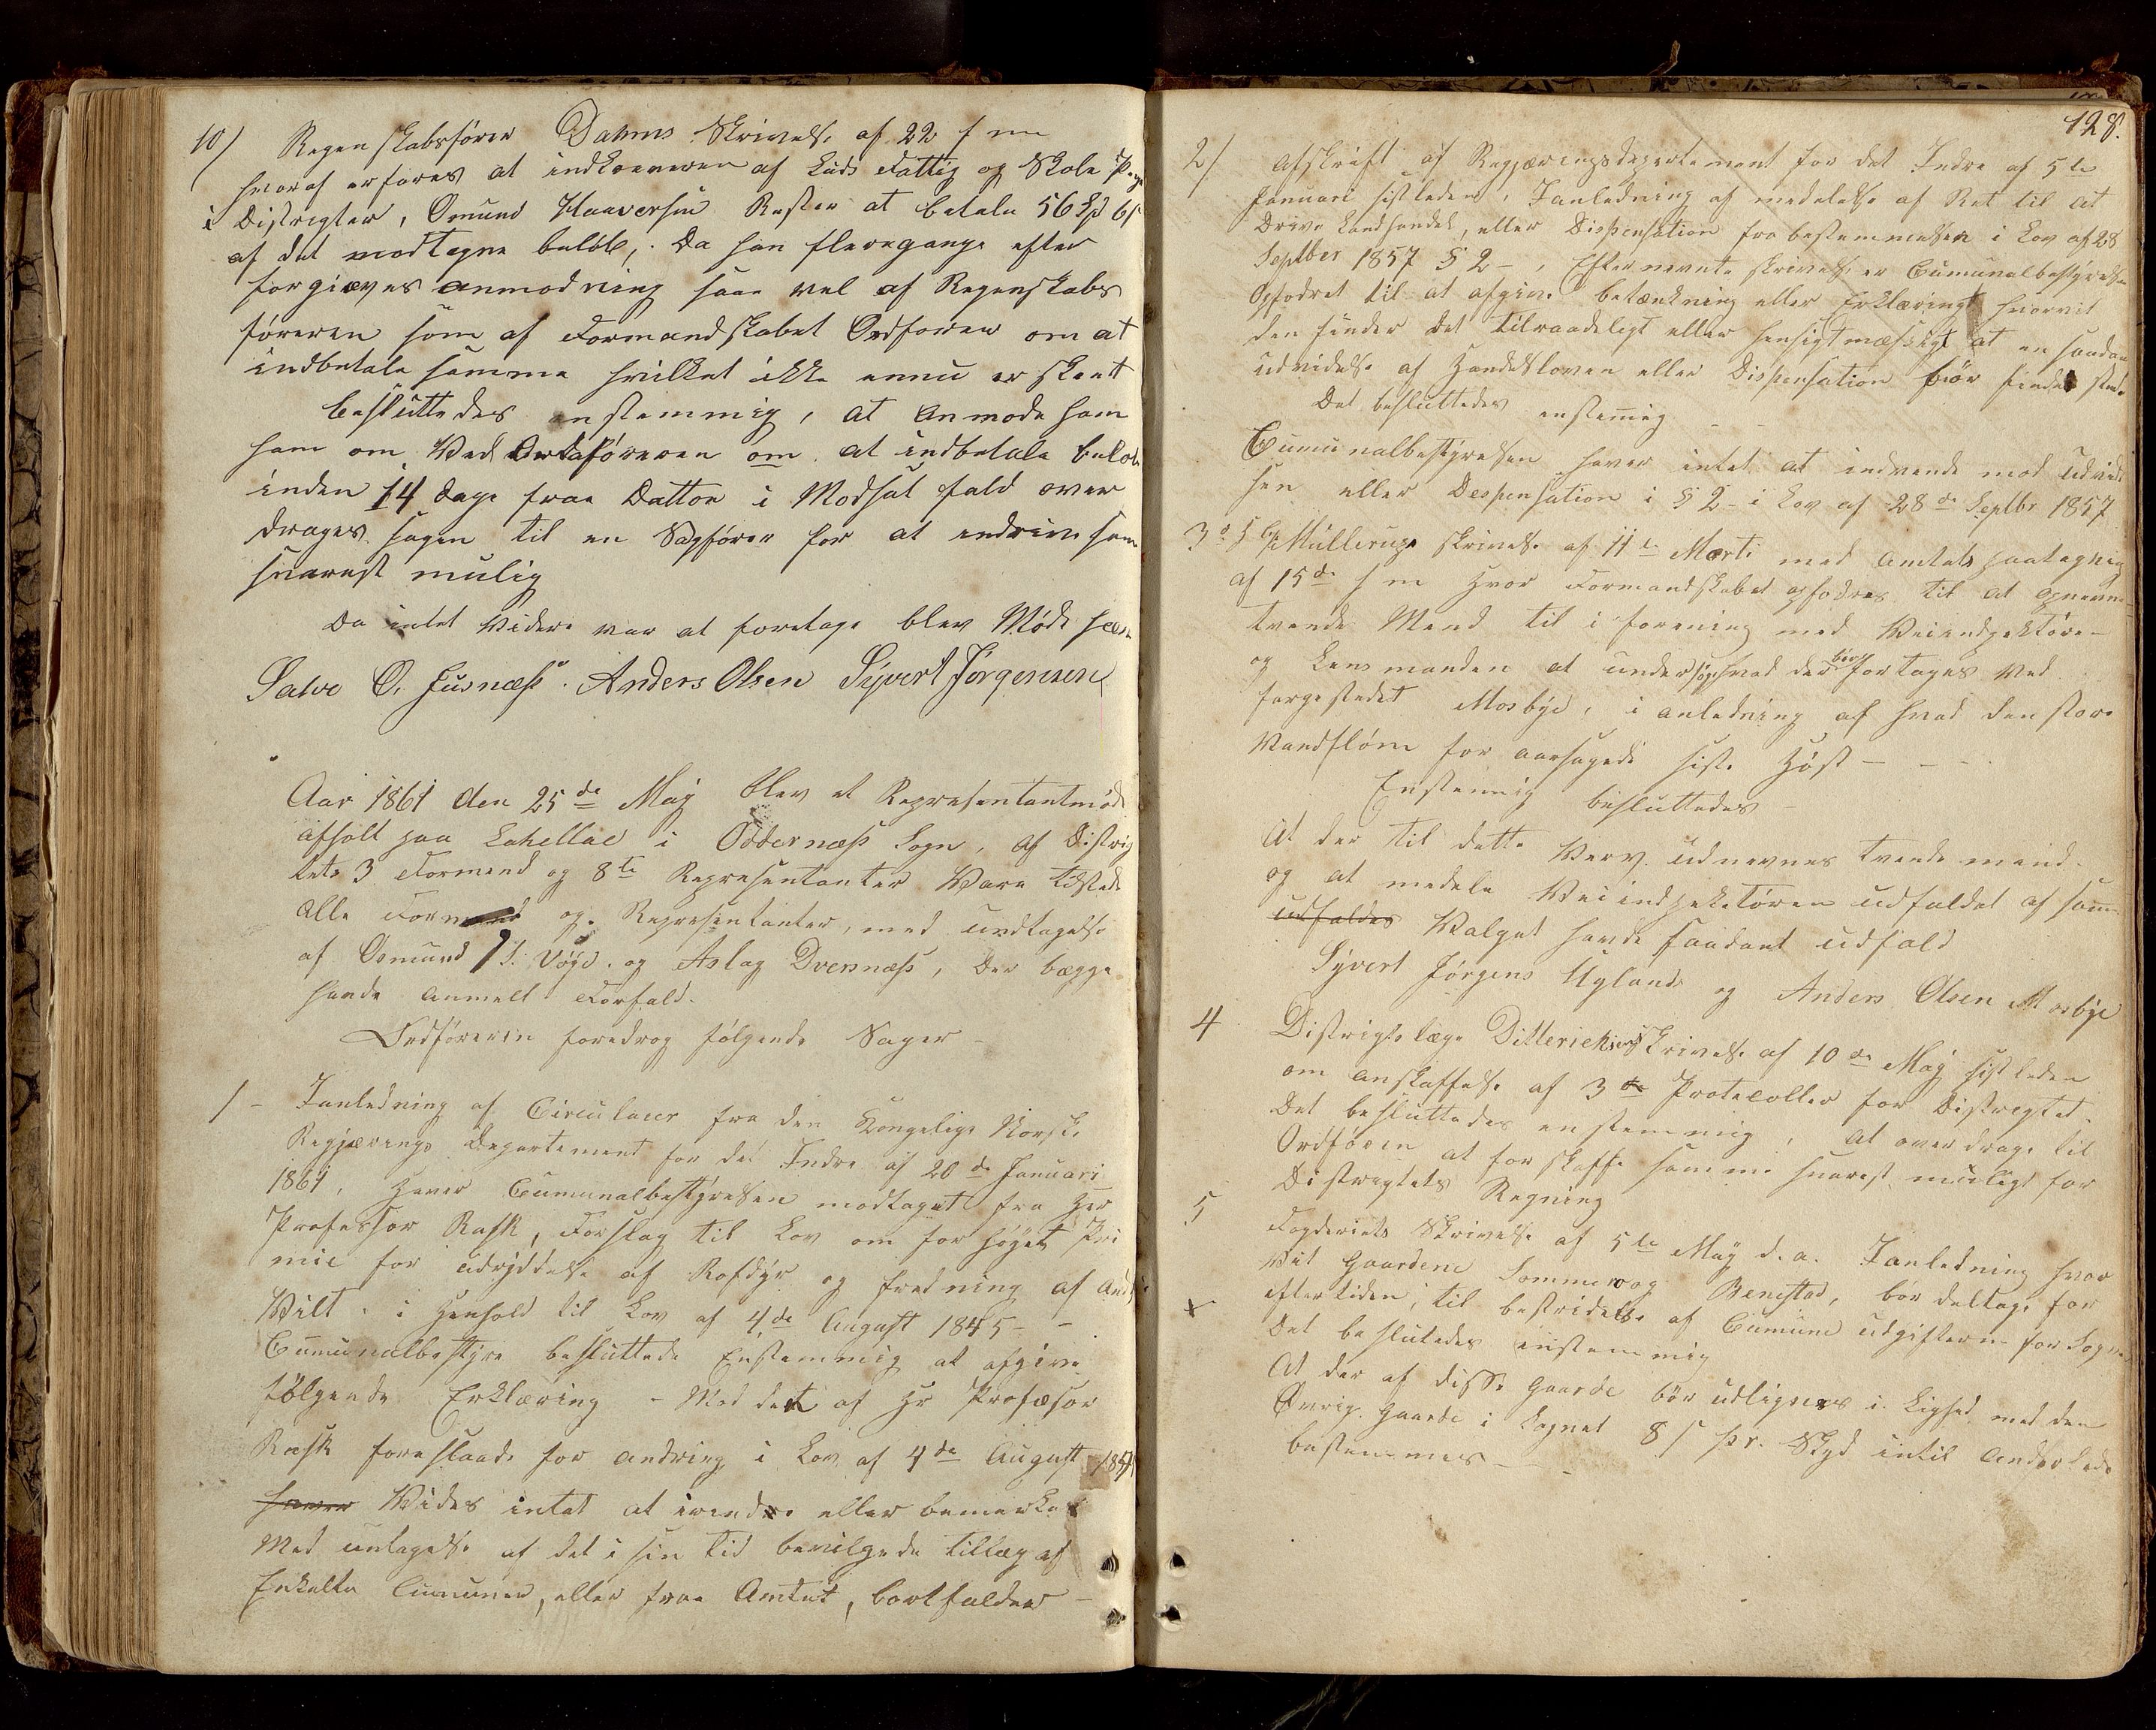 10/ Regenskabsfører Dahms Skrivelse af 22 f m
hvoraf erfares at indkreveren af Luds Fattig og Skole
i Distrigter, Omund Haaversen Rester at betale 56 Spd
af det modtagne beløb, Da han fleregange efter
forgieves anmodning saavel af Regenskabs
føreren som af Formandskabet Ordfører om at
indbetale samme hvilket ikke ennu er skeet
besluttedes enstemmig, at anmode ham
ham om Ved Ordføreren om at indbetale belob
inden 14 dage fraa Datto i Modsat fald over
drages sagen til en Sagfører for at indrive som
snarest mulig
Da intet Videre var at foretage blev Møde
Salve O. Jusnæss. Anders Olsen Syvert Jørgensen
Aar 1861 den 25de May blev et Representantmøde
afholt paa Lahellæ i Oddernæss Sogn, af Distrig
tets 3 Formend og 8te Representanter Vare tilstede
alle Formend og Representanter, med undtagelse
af Omund S. Vøge og Aslag Dversnæss, der begge
havde anmelt Forfald.
Ordføreren foredrog følgende Sager –
1 – Ianledning af Circulær fra den Kongelige Norske
Regjærings Departement for det Indre af 20de Januari
1861, Haver Cumunalbestyrelsen modtaget fra Her
Professor Rask, Forslag til Lov om forhøyet Pri
mie for udryddelse af Rofdyr og fredning af andet
Vilt. i Henhold til Lov af 4de August 1845 – –
Cumunalbestyre besluttede Enstemmig at afgive
følgende Erklæring – Med det af Hr Profæsor
Rask foreslaade forandring i Lov af 4de August 1845
haver Vides intet at ivendre eller bemerkes
Med untagelse af det i sin tid bevilgede tillæg af
Enkelte Cumuner, eller fraa Amtet, bortfalder –
128.
2/ Afskrift af Regjæringsdepertement for det Indre af 5te
Januari sistleden, Ianledning af medelelse af Ret til at
Drive Landhandel, eller Dispensation fra bestemmelsen i Lov af 28
Septber 1857 § 2 –, Efter nevnte skrivelse er Cumunalbestyrelsen
Opfodret til at afgive betænkning eller Erklæring hvorvit
den finder det tilraadeligt eller hensigtmæssigt at en saadan
udvidelse af Handelsloven eller Dispensation bør finde sted
Det besluttedes enstemig – –
Cumunalbestyrelsen haver intet at indvende mod Udvidel
sen eller Despensation i § 2 – i Lov af 28de Septbr 1857
3 Møllerups skrivelse af 11te Marti med Amtets paategning
af 15de f m Hvor Formandskabet opfodres til at opnevne
tvende Mend til i forening med Veiindpektøre –
og Lensmanden at undersøge hvad der bør fortages Ved
fergestedet Mosbye, i anledning af hvad den store
Vandfløm foraarsagede siste Høst – – –
Enstemmig besluttedes –
At der til dette Verv. udnevnes tvende mend.
og at medele Veiindpektøren udfaldet af samme
udfaldes Valget havde saadant udfald
Syvert Jørgens Ugland og Anders Olsen Mosbye
4 Distrigtslæge Ditterichsens Skrivelse af 10de May sistleden
om anskaffelse af 3de Protecoller for Distregtet.
Det besluttedes enstemmig, at overdrage til
Ordføren at forskaffe samme snarest muligt for
Distregtets Regning
5 Fogderiets Skrivelse af 5te May d. a. Ianledning hvor
vit Gaardene Sommero og Benestad, bør deltage for
eftertiden, til bestridelse af Cumune udgifterne for Sogn
Det besluttedes enstemmig
At der af disse Gaarde bør udlignes i Lighed med den
Øvrige Gaarde i Sognet 8 s pr. Skyd intil anderlede
bestemmes – –